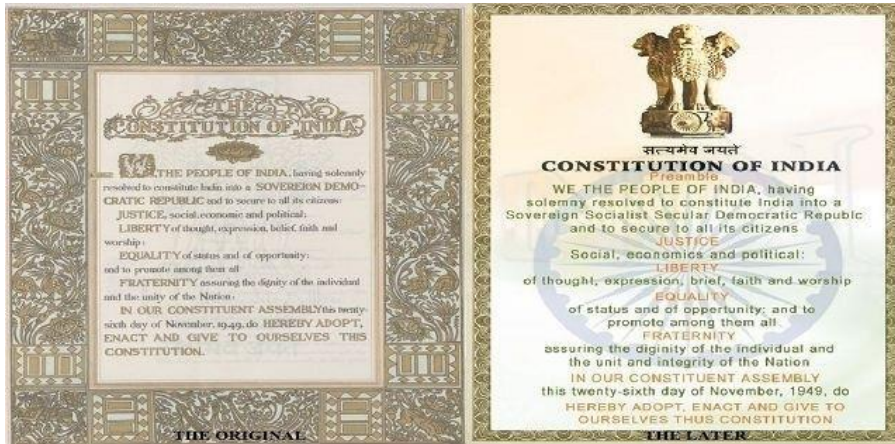 THE
CONSTITUTION OF INDIA
WE, THE PEOPLE OF INDIA, having solemnly
resolved to constitute India into a SOVEREIGN DEMO-
CRATIC REPUBLIC and to secure to all its citizens:
JUSTICE, social, economic and political;
LIBERTY of thought, expression, belief, faith and
worship;
EQUALITY of status and of opportunity;
and to promote among them all
FRATERNITY assuring the dignity of the individual
and the unity of the Nation;
IN OUR CONSTITUENT ASSEMBLY this twenty-
sixth day of November, 1949, do HEREBY ADOPT,
ENACT AND GIVE TO OURSELVES THIS
CONSTITUTION.
THE ORIGINAL
सत्यमेव जयते
CONSTITUTION OF INDIA
Preamble
WE THE PEOPLE OF INDIA, having
solemny resolved to constitute India into a
Sovereign Socialist Secular Democratic Republc
and to secure to all its citizens
JUSTICE
Social, economics and political:
LIBERTY
of thought, expression, brief, faith and worship
EQUALITY
of status and of opportunity: and to
promote among them all
FRATERNITY
assuring the diginity of the individual and
the unit and integrity of the Nation
IN OUR CONSTITUENT ASSEMBLY
this twenty-sixth day of November, 1949, do
HEREBY ADOPT, ENACT AND GIVE TO
OURSELVES THUS CONSTITUTION
THE LATER